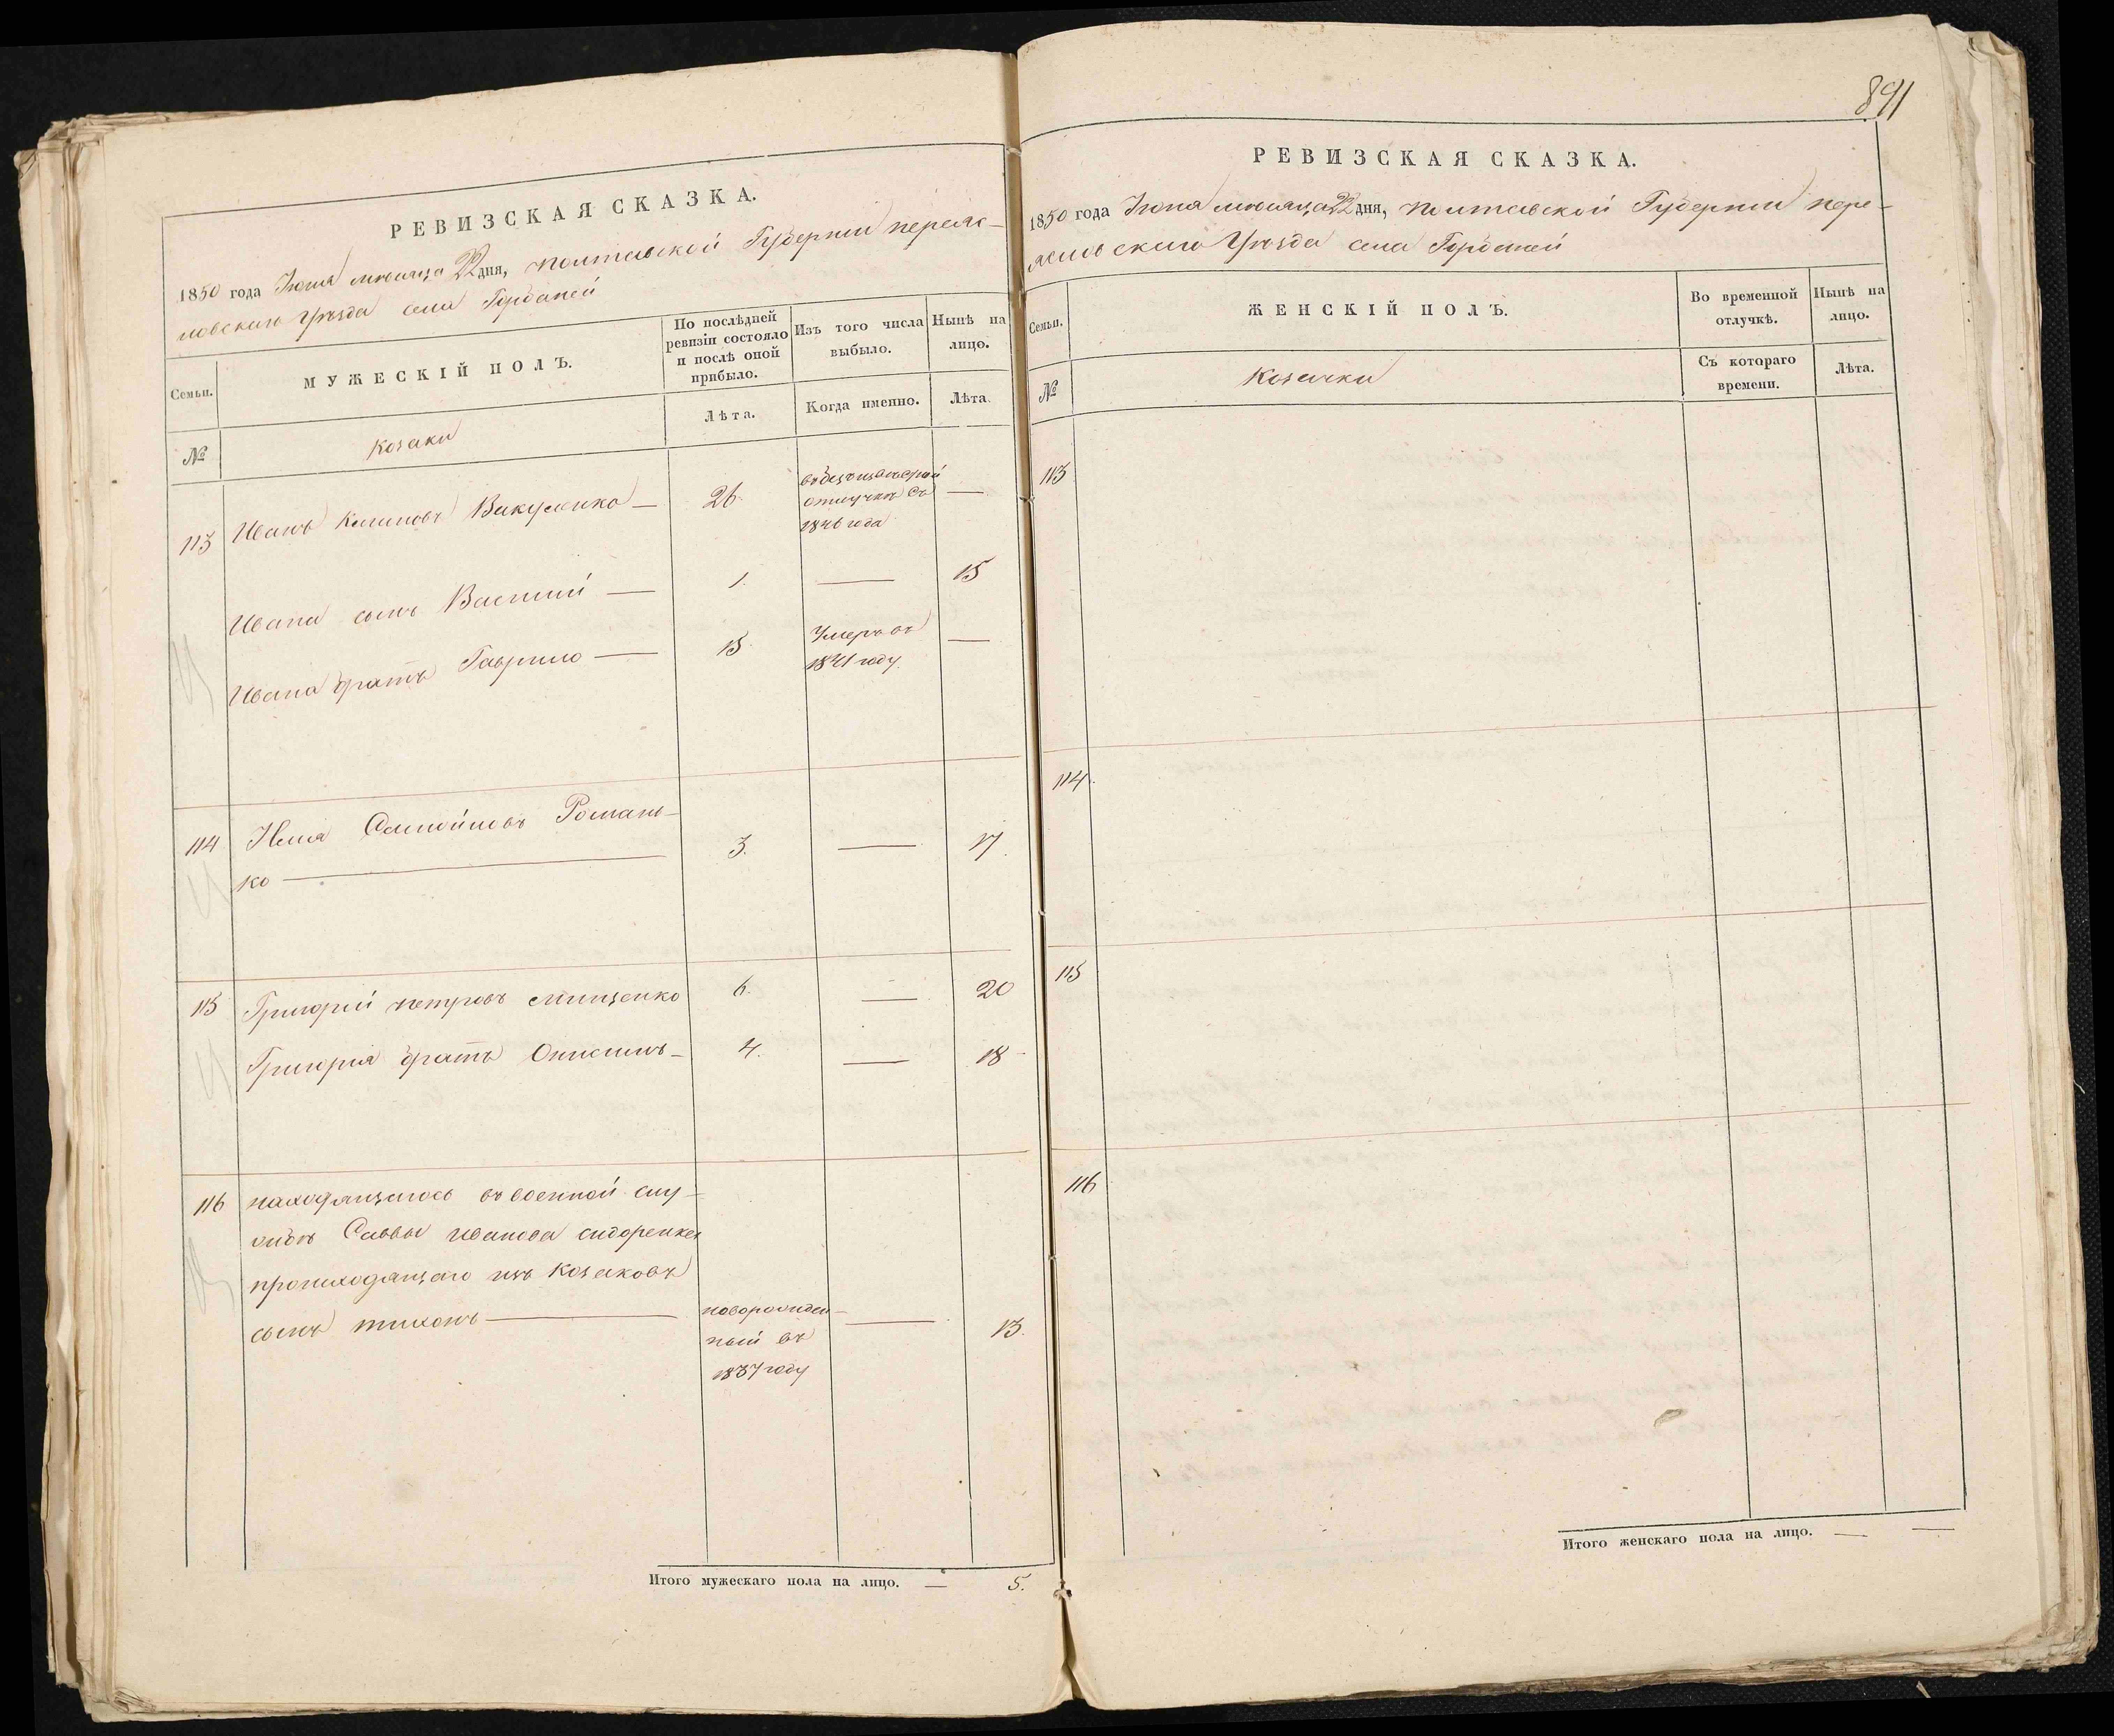 РЕВИЗСКАЯ СКАЗКА.
1850 года Июня месяца 22 дня, Полтавской Губернии переяс-
ловскаго Уѣзда села Горбаней
Семьи.
МУЖЕСКІЙ ПОЛЪ.
По послѣдней
ревизіи состояло
и послѣ оной
прибыло.
Изъ того числа
выбыло.
Нынѣ на
лицо.
№
козаки
Лѣта.
Когда именно.
Лѣта.
113
Иванъ Климовъ Вакуленко —
26.
въ
отлучкѣ съ
1846 года
—
Ивана сынъ Василий —
1.
—
15
Ивана братъ Гаврило —
15.
Умеръ въ
1841 году.
—
114
Илля Самойловъ Романь-
ко —
3.
—
17.
115
Григорій петровъ мищенко
6.
—
20
Григорія братъ Онисимъ —
4.
—
18
116
находящагося въ военной слу-
жбѣ Саввы иванова сидоренка
происходящаго изъ козаковъ
сынъ тихонъ —
новорожден-
ный въ
1837 году
—
13.
Итого мужескаго пола на лицо. — 5.
891
РЕВИЗСКАЯ СКАЗКА.
1850 года Июня месяца 22 дня, Полтавской Губернии пере-
яслоскаго Уѣзда села Горбаней
Семьи.
ЖЕНСКІЙ ПОЛЪ.
Во временной
отлучкѣ.
Нынѣ на
лицо.
№
козачки
Съ котораго
времени.
Лѣта.
113
114.
115
116
Итого женскаго пола на лицо. — —